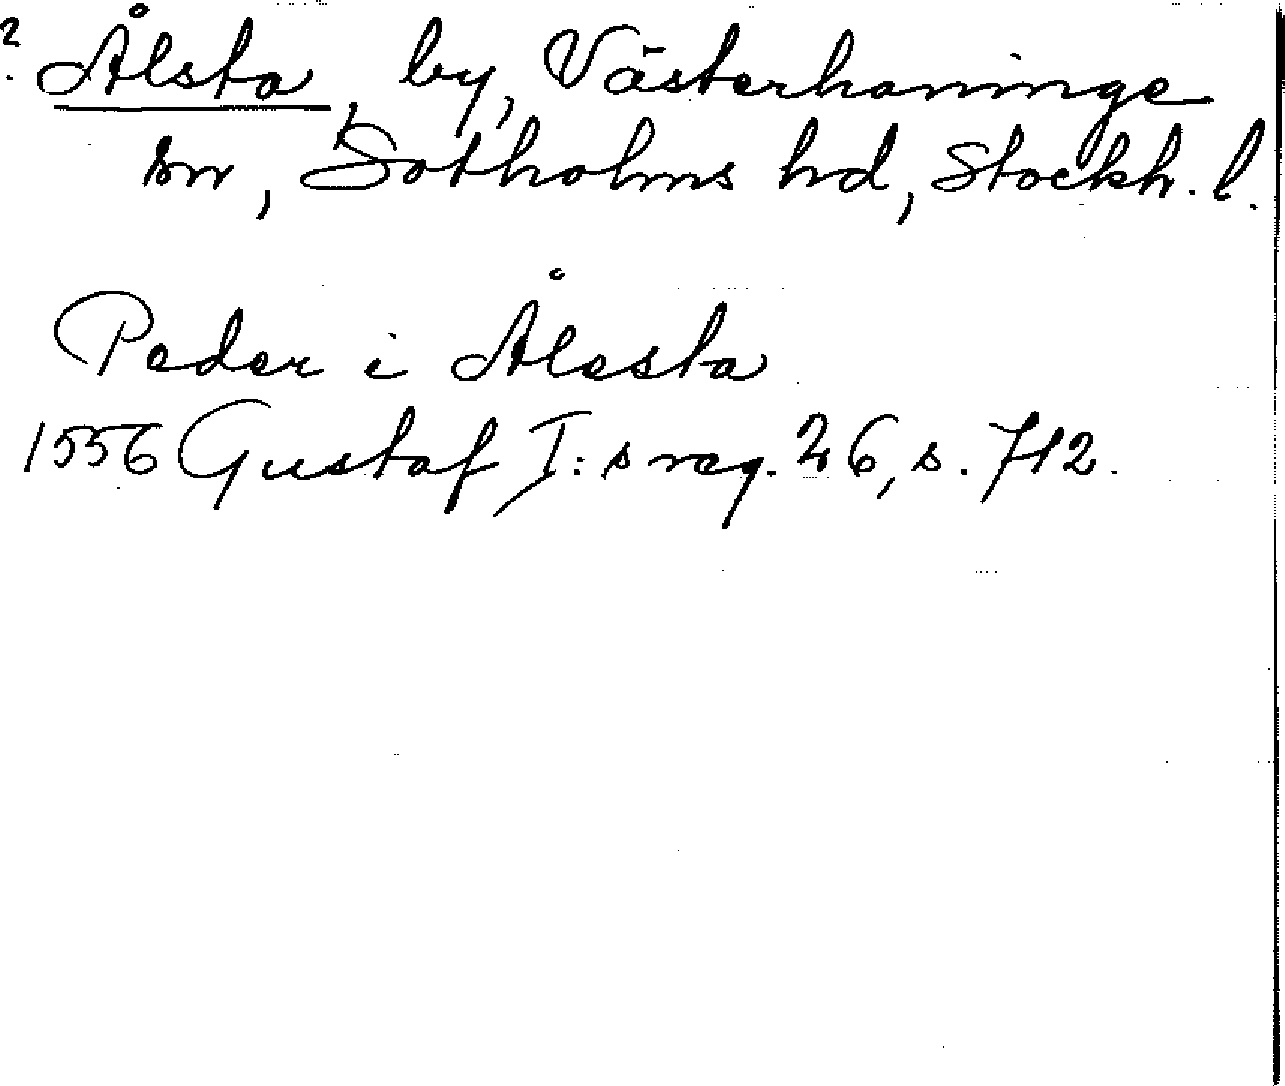 ? Ålsta, by, Västerhaninge
sn, Sotholms hd, Stockh. l.
Peder i Ålesta
1556 Gustaf I:s reg. 26, s. 712.